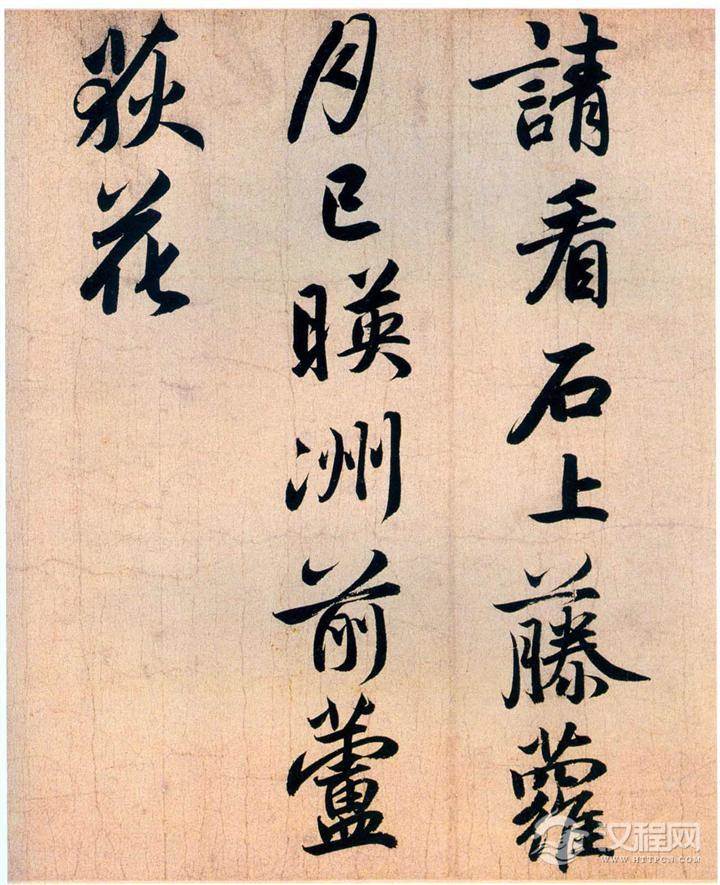 請看石上藤蘿
月已暎洲前蘆
荻花
汉程网
WWW.HTTPCN.COM